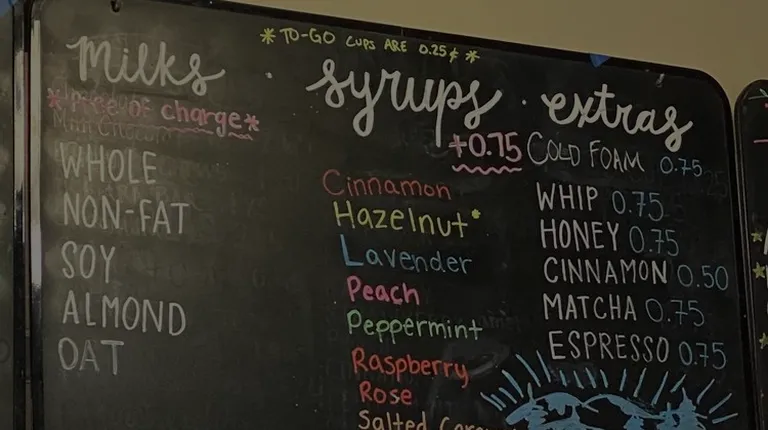 *TO-GO CUPS ARE 0.25¢*
milks · syrups · extras
*free of charge*
WHOLE
NON-FAT
SOY
ALMOND
OAT
+0.75
Cinnamon
Hazelnut*
Lavender
Peach
Peppermint
Raspberry
Rose
Salted
COLD FOAM 0.75
WHIP 0.75
HONEY 0.75
CINNAMON 0.50
MATCHA 0.75
ESPRESSO 0.75